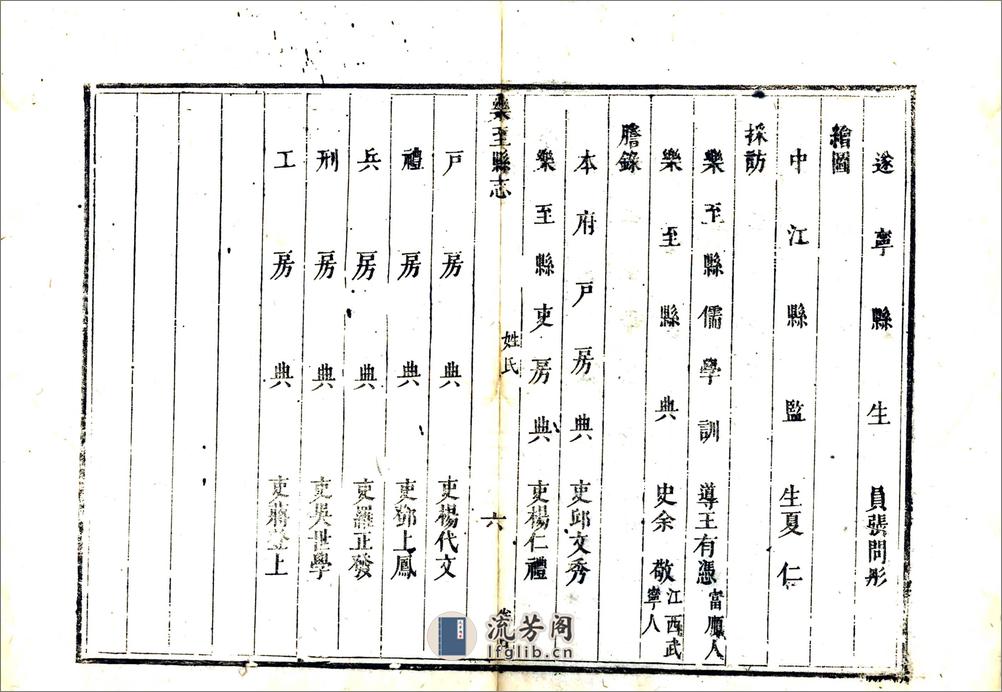 遂寧縣生員張問彤
繪圖
中江縣監生夏仁
採訪
樂至縣儒學訓導王有憑富順人
樂至縣典史余敬江西武寧人
謄錄
本府戶房典吏邱文秀
樂至縣吏房典吏楊仁禮
樂至縣志
姓氏
六
戶房典吏楊代文
禮房典吏鄧上鳳
兵房典吏羅正發
刑房典吏吳世學
工房典吏蔣登上
流芳阁
lfglib.cn